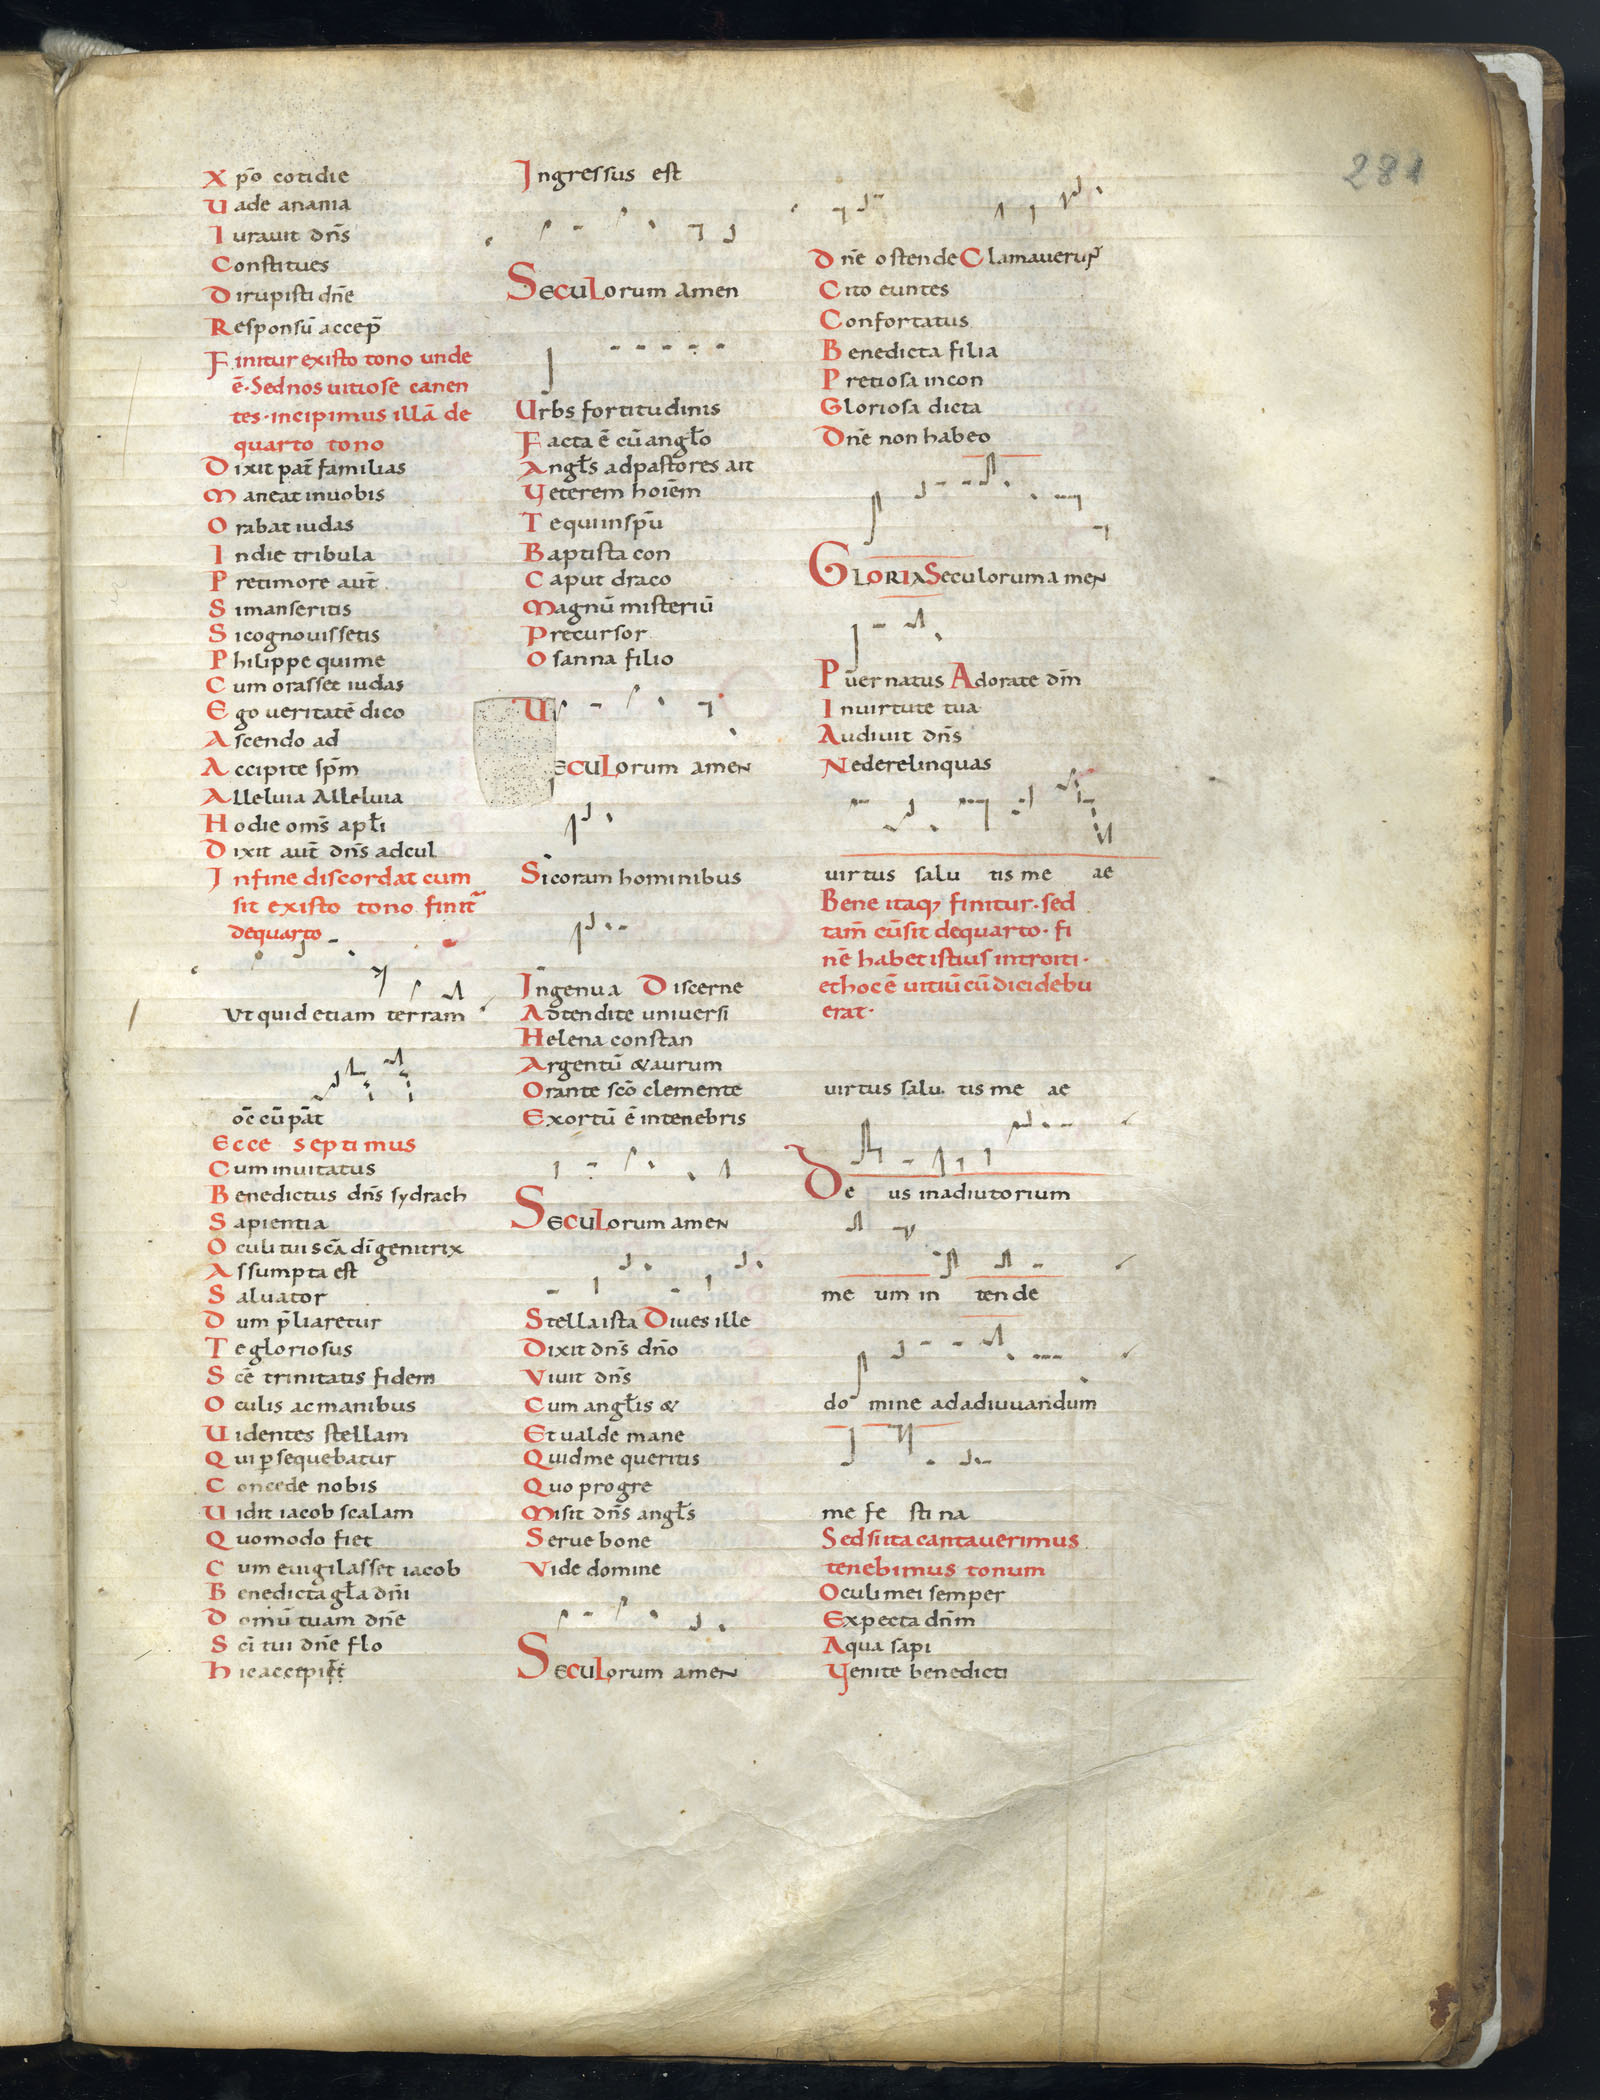 281
Xp̄o cotidie
Uade anania
Iurauit dn̄s
Constitues
Dirupisti dn̄e
Responsū accep̄
Finitur existo tono unde
ē. Sed nos uitiose canen
tes. incipimus illā de
quarto tono
Dixit pat̄ familias
Maneat inuobis
Orabat iudas
In die tribula
P retimore aut̄
Simanseritis
Sicognouissetis
Philippe quime
Cum orasset iudas
Ego veritatē dico
Ascendo ad
Accipite sp̄m
Alleluia Alleluia
Hodie om̄s apƚi
Dixit aut̄ dn̄s adcul
Infine discordat cum
sit existo tono finit̄
dequarto
Ut quid etiam terram
oc̄cūpāt
Ecce septimus
Cum inuitatus
Benedictus dn̄s sydrach
Sapientia
Oculi tui sc̄a dī genitrix
Assumpta est
Saluator
Dum p̄liaretur
Te gloriosus
Scē trinitatis fidem
Oculis ac manibus
Uidentes stellam
Qui ꝑsequebatur
Concede nobis
Uidit iacob scalam
Quomodo fiet
Cum euigilasset iacob
Benedicta gƚa dn̄i
Domū tuam dn̄e
Sc̄i tui dn̄e flo
hic accipiet
Ingressus est
SECULorum amen
Urbs fortitudinis
Facta ē cū angƚo
Angƚs ad pastores ait
Veterem hoīem
Te qui in sp̄u
Baptista con
Caput draco
Magnū misteriū
Precursor
Osanna filio
U
ECULorum ameN
Sicoram hominibus
Ingenua Discerne
Adtendite universi
Helena constan
Argentū & aurum
Orante sc̄o clemente
Exortū ē intenebris
SECULorum ameN
Stella ista Diues ille
Dixit dn̄s dn̄o
Viuit dn̄s
Cum angƚis &
Et ualde mane
Quidme queritis
Quo progre
Misit dn̄s angƚs
Serue bone
Vide domine
SECULorum ameN
Dn̄e ostende Clamauerun̄t
Cito euntes
Confortatus
Benedicta filia
Pretiosa incon
Gloriosa dicta
Dn̄e non habeo
GLORIA Seculorum ameN
Puer natus Adorate dm̄
Inuirtute tua
Audiuit dn̄s
Nederelinquas
uirtus salu tis me ae
Bene itaq; finitur. sed
tam̄ cū sit dequarto. fi
nē habet istius introiti.
et hoc ē uitiū cū dici debu
erat.
uirtus salu tis me ae
De us in adiutorium
me um in tende
do mine ad adiuuandum
me fe sti na
Sed si ita cantauerimus
tenebimus tonum
Oculi mei semper
Expecta dn̄m
Aqua sapi
Venite benedicti